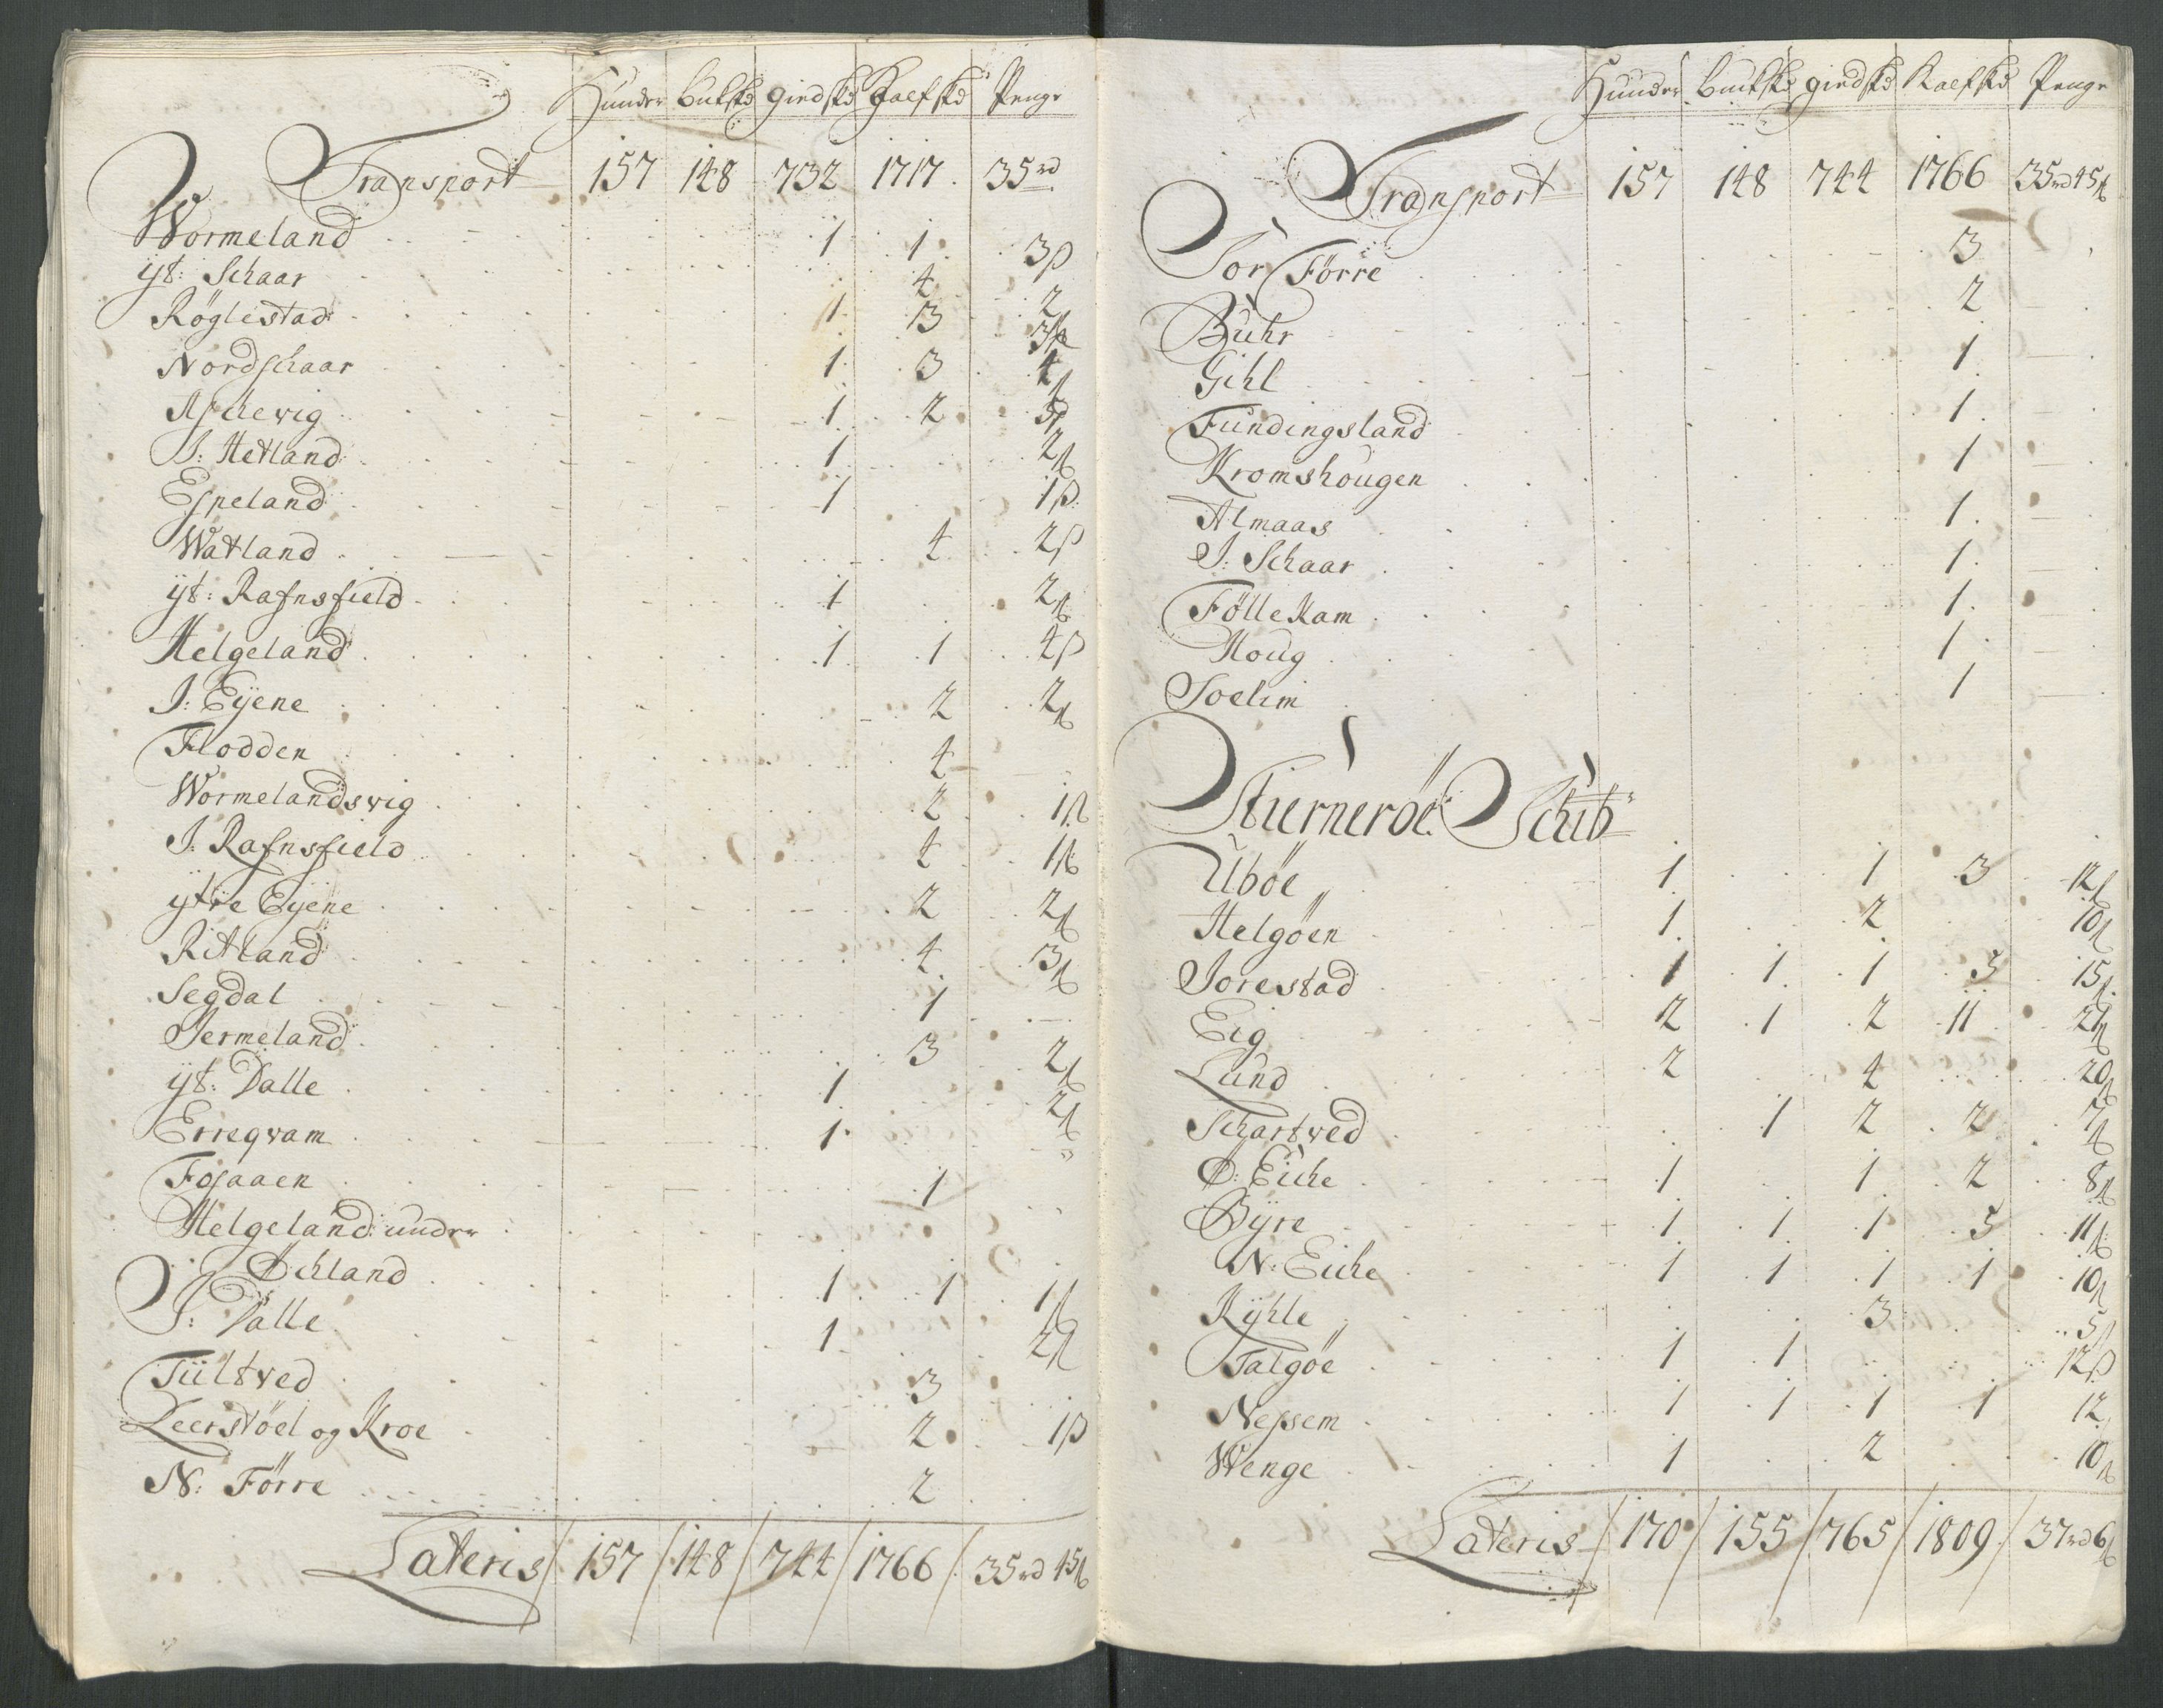 Hunder Bukskd giedskd Kalfskd Penge
Transport 157 148 732 1717 35rd
Wormeland 1 1 3ß
ÿt: Schaar 4 2ß
Röglestad 1 3 3ß
Nordschaar 1 3 4ß
Aschevig 1 2 3ß
I: Hetland 1 2ß
Espeland 1 1ß
Watland 4 2ß
ÿt: Rafnsfield 1 2ß
Helgeland 1 1 4ß
I: Eÿene 2 2ß
Flodden 4
Wormelandsvig 2 1ß
I: Rafnsfield 4 1ß
ÿtre Eÿene 2 2ß
Ritland 4 3ß
Segdal 1
Jermeland 3 2ß
ÿt: Dalle 1 2ß
Erreqvam 1
Fosaaen 1
Helgeland under
Öchland 1 1 1ß
I: Dalle 1 2ß
Tültved 3
Leerstöel og Kroe 2 1ß
N: Förre 2
Lateris 157 148 744 1766 35rd 45ß
Hunder Bukskd giedskd Kalfskd Penge
Transport 157 148 744 1766 35rd 45ß
Sör Förre 3
Buhr 2
Gihl 1
Fundingsland 1
Kromshougen 1
Almaas 1
I: Schaar 1
Föllekam 1
Houg 1
Soelim 1
Stierneröe Schib
Uböe 1 1 3 12ß
Helgöen 1 2 10ß
Jorestad 1 1 1 3 15ß
Eig 2 1 2 11 21ß
Lund 2 4 20ß
Schartved 1 2 2 7ß
Ö: Eiche 1 1 2 8ß
Bÿre 1 1 1 3 11ß
N: Eiche 1 1 1 1 10ß
Kÿhle 3 5ß
Talgöe 1 1 12ß
Nessem 1 1 1 1 12
Wenge 1 2 10ß
Lateris 170 155 765 1809 37rd 6ß